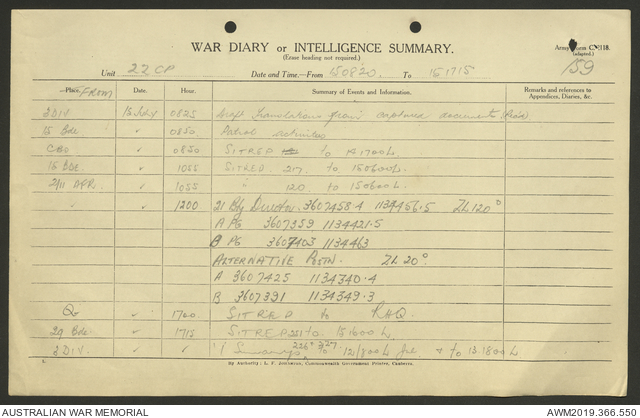 WAR DIARY or INTELLIGENCE SUMMARY.
(Erase heading not required.)
Army Form C. 2118.
(adapted.)
159
Unit 22 CP
Date and Time—From 150820. To 151715
Place FROM Date. Hour. Summary of Events and Information. Remarks and references to Appendices, Diaries, &c.
3 DIV 15 July 0825 Draft Translations from captured documents
15 Bde ✓ 0850 Patrol activities
✓ 0850 SITREP to 141700L
15 BDE ✓ 1055 SITREP 217 to 150600L.
2/11 AFR. ✓ 1055 " 120. to 150600L.
✓ ✓ 1200 21 Bty Director 3607458.4 1134456.5 ZL 120°
A PG 3607359 1134421.5
B PG 3607403 1134463
ALTERNATIVE POSTN. ZL 20°.
A 3607425 1134340.4
B 3607391 1134349.3
✓ 1700 SITREP to RHQ
29 Bde ✓ 1715 SITREP 251 to 151600L.
3 DIV. ✓ ✓ 226 & 227 to 121800L & to 131800L.
By Authority: L. F. Johnston, Commonwealth Government Printer, Canberra.
AUSTRALIAN WAR MEMORIAL
AWM2019.366.550